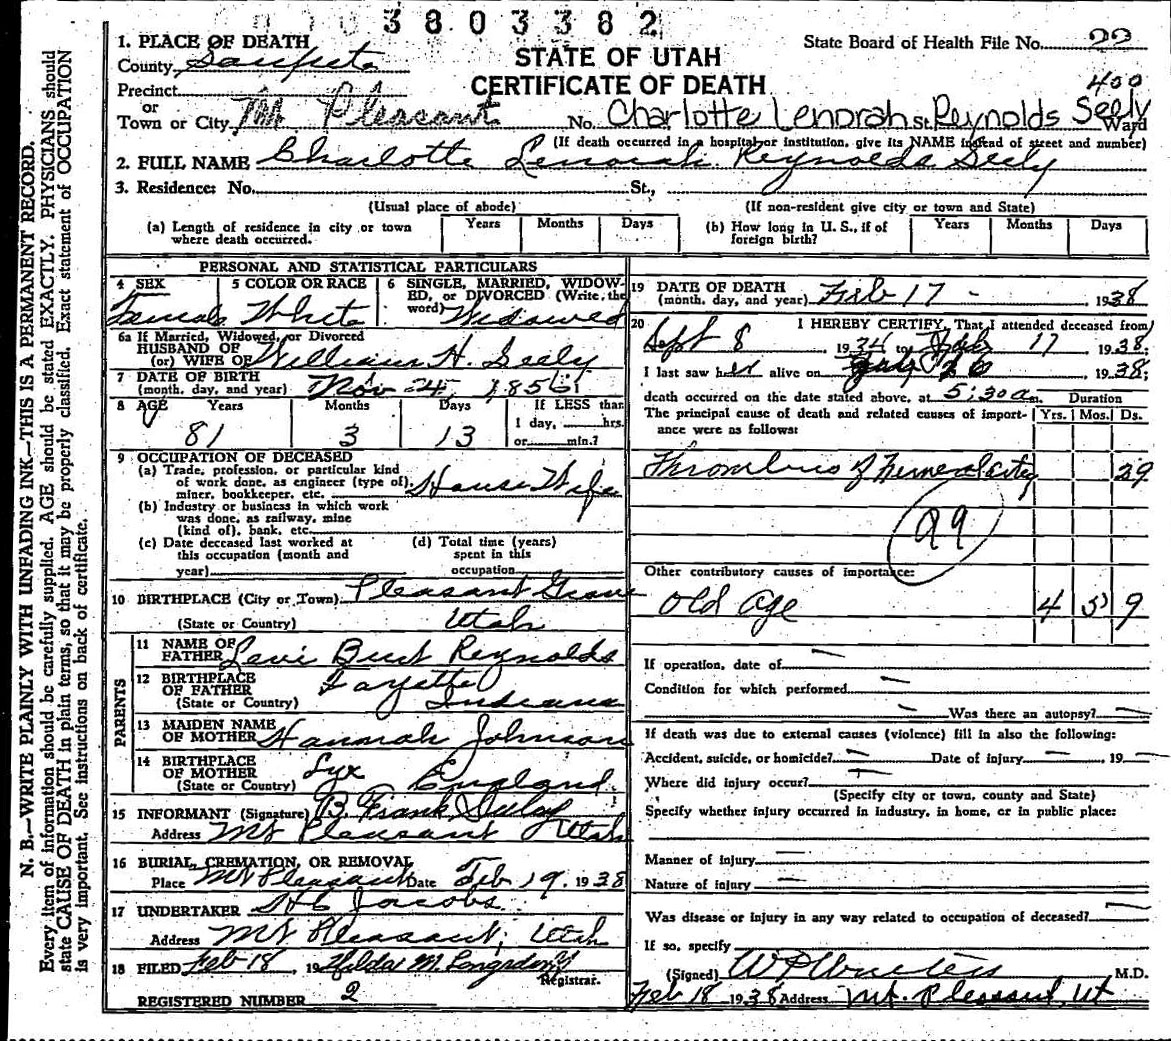 3803382
1. PLACE OF DEATH
County Sanpete
STATE OF UTAH
CERTIFICATE OF DEATH
State Board of Health File No. 22
400
Precinct
or
Town or City Mt Pleasant No. Charlotte Lenorah St. Reynolds Seely Ward
(If death occurred in a hospital or institution, give its NAME instead of street and number)
2. FULL NAME Charlotte Lenorah Reynolds Seely
3. Residence: No. St.,
(Usual place of abode) (If non-resident give city or town and State)
(a) Length of residence in city or town where death occurred. Years Months Days
(b) How long in U. S., if of foreign birth? Years Months Days
PERSONAL AND STATISTICAL PARTICULARS
4 SEX Female
5 COLOR OR RACE White
6 SINGLE, MARRIED, WIDOWED, or DIVORCED (Write the word) Widowed
6a If Married, Widowed, or Divorced
HUSBAND OF
(or) WIFE OF William H. Seely
7 DATE OF BIRTH
(month, day, and year) Nov 24, 1856
8 AGE Years Months Days If LESS than
1 day, hrs.
or min.?
81 3 13
9 OCCUPATION OF DECEASED
(a) Trade, profession, or particular kind
of work done, as engineer (type of),
miner, bookkeeper, etc. House Wife
(b) Industry or business in which work
was done, as railway, mine
(kind of), bank, etc.
(c) Date deceased last worked at
this occupation (month and
year)
(d) Total time (years)
spent in this
occupation
10 BIRTHPLACE (City or Town) Pleasant Grove
(State or Country) Utah
PARENTS
11 NAME OF
FATHER Levi Burt Reynolds
12 BIRTHPLACE
OF FATHER Fayette
(State or Country) Indiana
13 MAIDEN NAME
OF MOTHER Hannah Johnson
14 BIRTHPLACE
OF MOTHER
(State or Country) England
15 INFORMANT (Signature) B. Frank Seeley
Address Mt Pleasant Utah
16 BURIAL, CREMATION, OR REMOVAL
Place Mt Pleasant Date Feb 19, 1938
17 UNDERTAKER Jacobs
Address Mt Pleasant, Utah
18 FILED Feb 18, 19 Hilda M. Longsdorf
Registrar.
REGISTERED NUMBER 2
19 DATE OF DEATH
(month, day, and year) Feb 17 - 1938
20 I HEREBY CERTIFY, That I attended deceased from
Sept 8, 1934 to Feb 17 1938;
I last saw her alive on 1938;
death occurred on the date stated above, at 5:30 a m. Duration
The principal cause of death and related causes of importance were as follows: Yrs. Mos. Ds.
Thrombus of Femoral 29
99
Other contributory causes of importance:
Old Age 4 5 9
If operation, date of
Condition for which performed
Was there an autopsy?
If death was due to external causes (violence) fill in also the following:
Accident, suicide, or homicide? Date of injury 19
Where did injury occur?
(Specify city or town, county and State)
Specify whether injury occurred in industry, in home, or in public place:
Manner of injury
Nature of injury
Was disease or injury in any way related to occupation of deceased?
If so, specify
(Signed) M.D.
Feb 18 1938 Address Mt. Pleasant, Ut
N. B.—WRITE PLAINLY WITH UNFADING INK—THIS IS A PERMANENT RECORD.
Every item of information should be carefully supplied. AGE should be stated EXACTLY. PHYSICIANS should
state CAUSE OF DEATH in plain terms, so that it may be properly classified. Exact statement of OCCUPATION
is very important. See instructions on back of certificate.